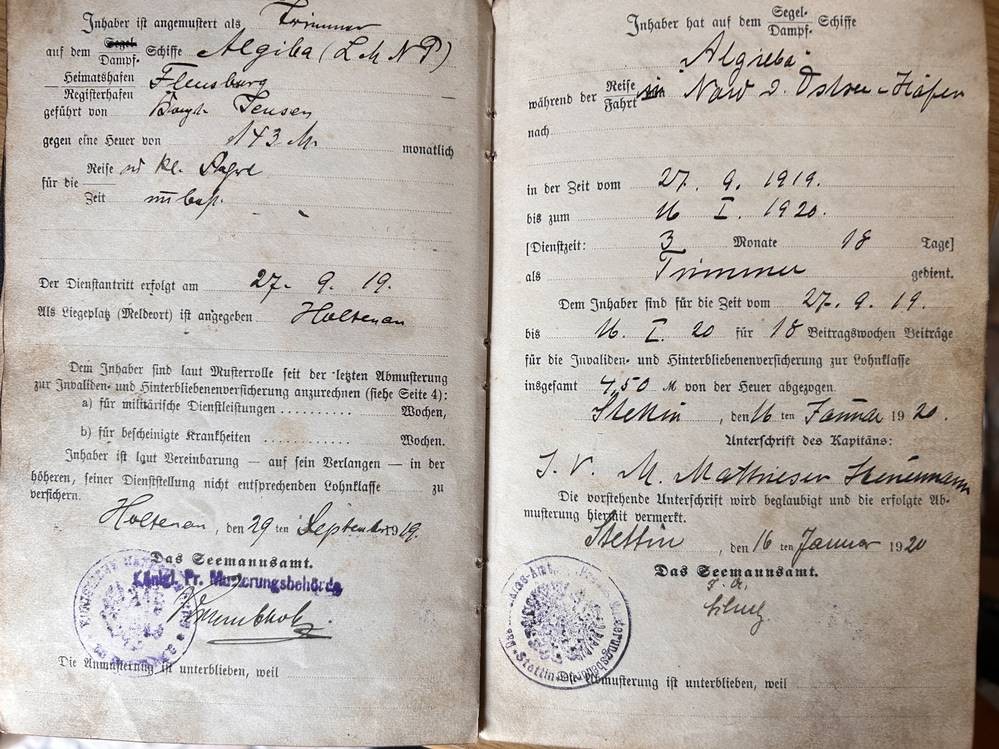 Inhaber ist angemustert als Trimmer
auf dem Segel- Dampf- Schiffe Algiba (L M N P)
Heimatshafen Registerhafen Flensburg
geführt von Jensen
gegen eine Heuer von 143 M. monatlich
für die Reise Zeit kl. Fahrt
unbest.
Der Dienstantritt erfolgt am 27. 9. 19.
Als Liegeplatz (Meldeort) ist angegeben Holtenau
Dem Inhaber sind laut Musterrolle seit der letzten Abmusterung
zur Invaliden- und Hinterbliebenenversicherung anzurechnen (siehe Seite 4):
a) für militärische Dienstleistungen .......... Wochen,
b) für bescheinigte Krankheiten ............ Wochen.
Inhaber ist laut Vereinbarung — auf sein Verlangen — in der
höheren, seiner Dienststellung nicht entsprechenden Lohnklasse zu
versichern.
Holtenau, den 29 ten September 1919.
Das Seemannsamt.
Königl. Pr. Musterungsbehörde
Die Anmusterung ist unterblieben, weil
Inhaber hat auf dem Segel- Dampf- Schiffe
Algieba
während der Reise Fahrt in Nord u. Ostsee-Häfen
nach
in der Zeit vom 27. 9. 1919.
bis zum 16 I. 1920.
[Dienstzeit: 3 Monate 18 Tage]
als Trimmer gedient.
Dem Inhaber sind für die Zeit vom 27. 9. 19.
bis 16. I. 20 für 18 Beitragswochen Beiträge
für die Invaliden- und Hinterbliebenenversicherung zur Lohnklasse
insgesamt 4,50 M von der Heuer abgezogen.
Stettin, den 16 ten Januar 1920.
Unterschrift des Kapitäns:
I. V. M. Mathiesen Steuermann
Die vorstehende Unterschrift wird beglaubigt und die erfolgte Ab-
musterung hiermit vermerkt.
Stettin, den 16 ten Januar 1920
Das Seemannsamt.
Stettin
Die Abmusterung ist unterblieben, weil